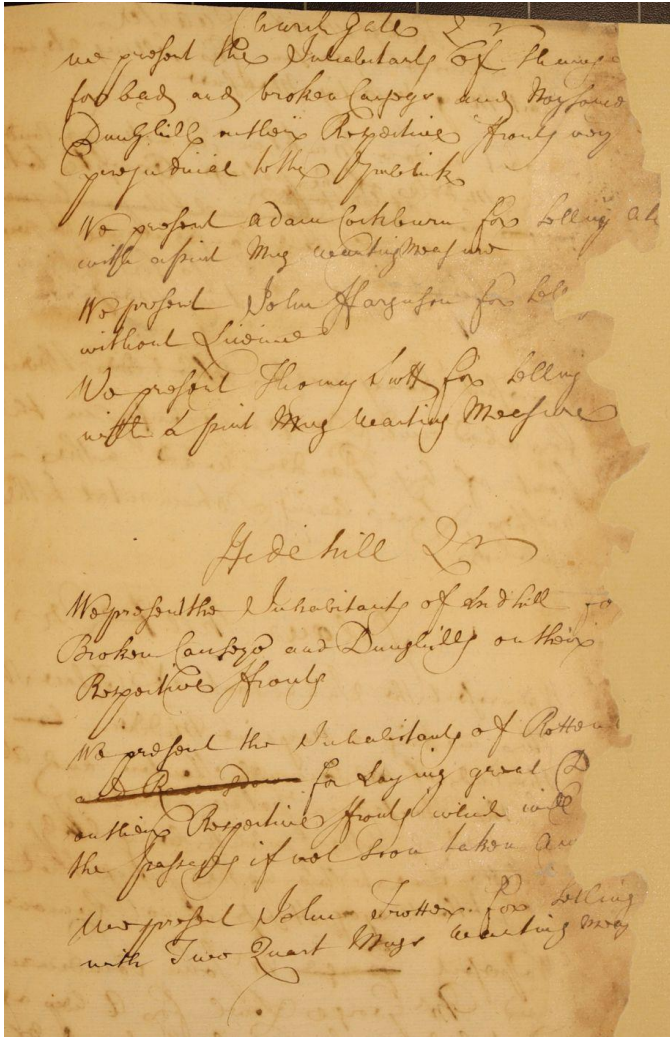 Church Gate Qr
We present the Inhabitants of
for bad and broken Causeys and Noysome
Dunghills on their Respective ffronts very
prejudiciel to the Publick
We present Adam Cockburn for Selling Ale
with a pint Mug wanting Measure
We present John ffarguson for Sell
without Lisence
We present Thomas Scott for Selling
with a pint Mug wanting Measure
Hidehill Qr
We present the Inhabitants of hidhill fo
Broken Causeys and Dunghills on their
Respective ffronts
We present the Inhabitants of Rotten
and for Laying great D
on their Respective ffronts which will
the passages if not soon taken aw
We present John Trotter for Selling
with Two Quart Mugs wanting Meas